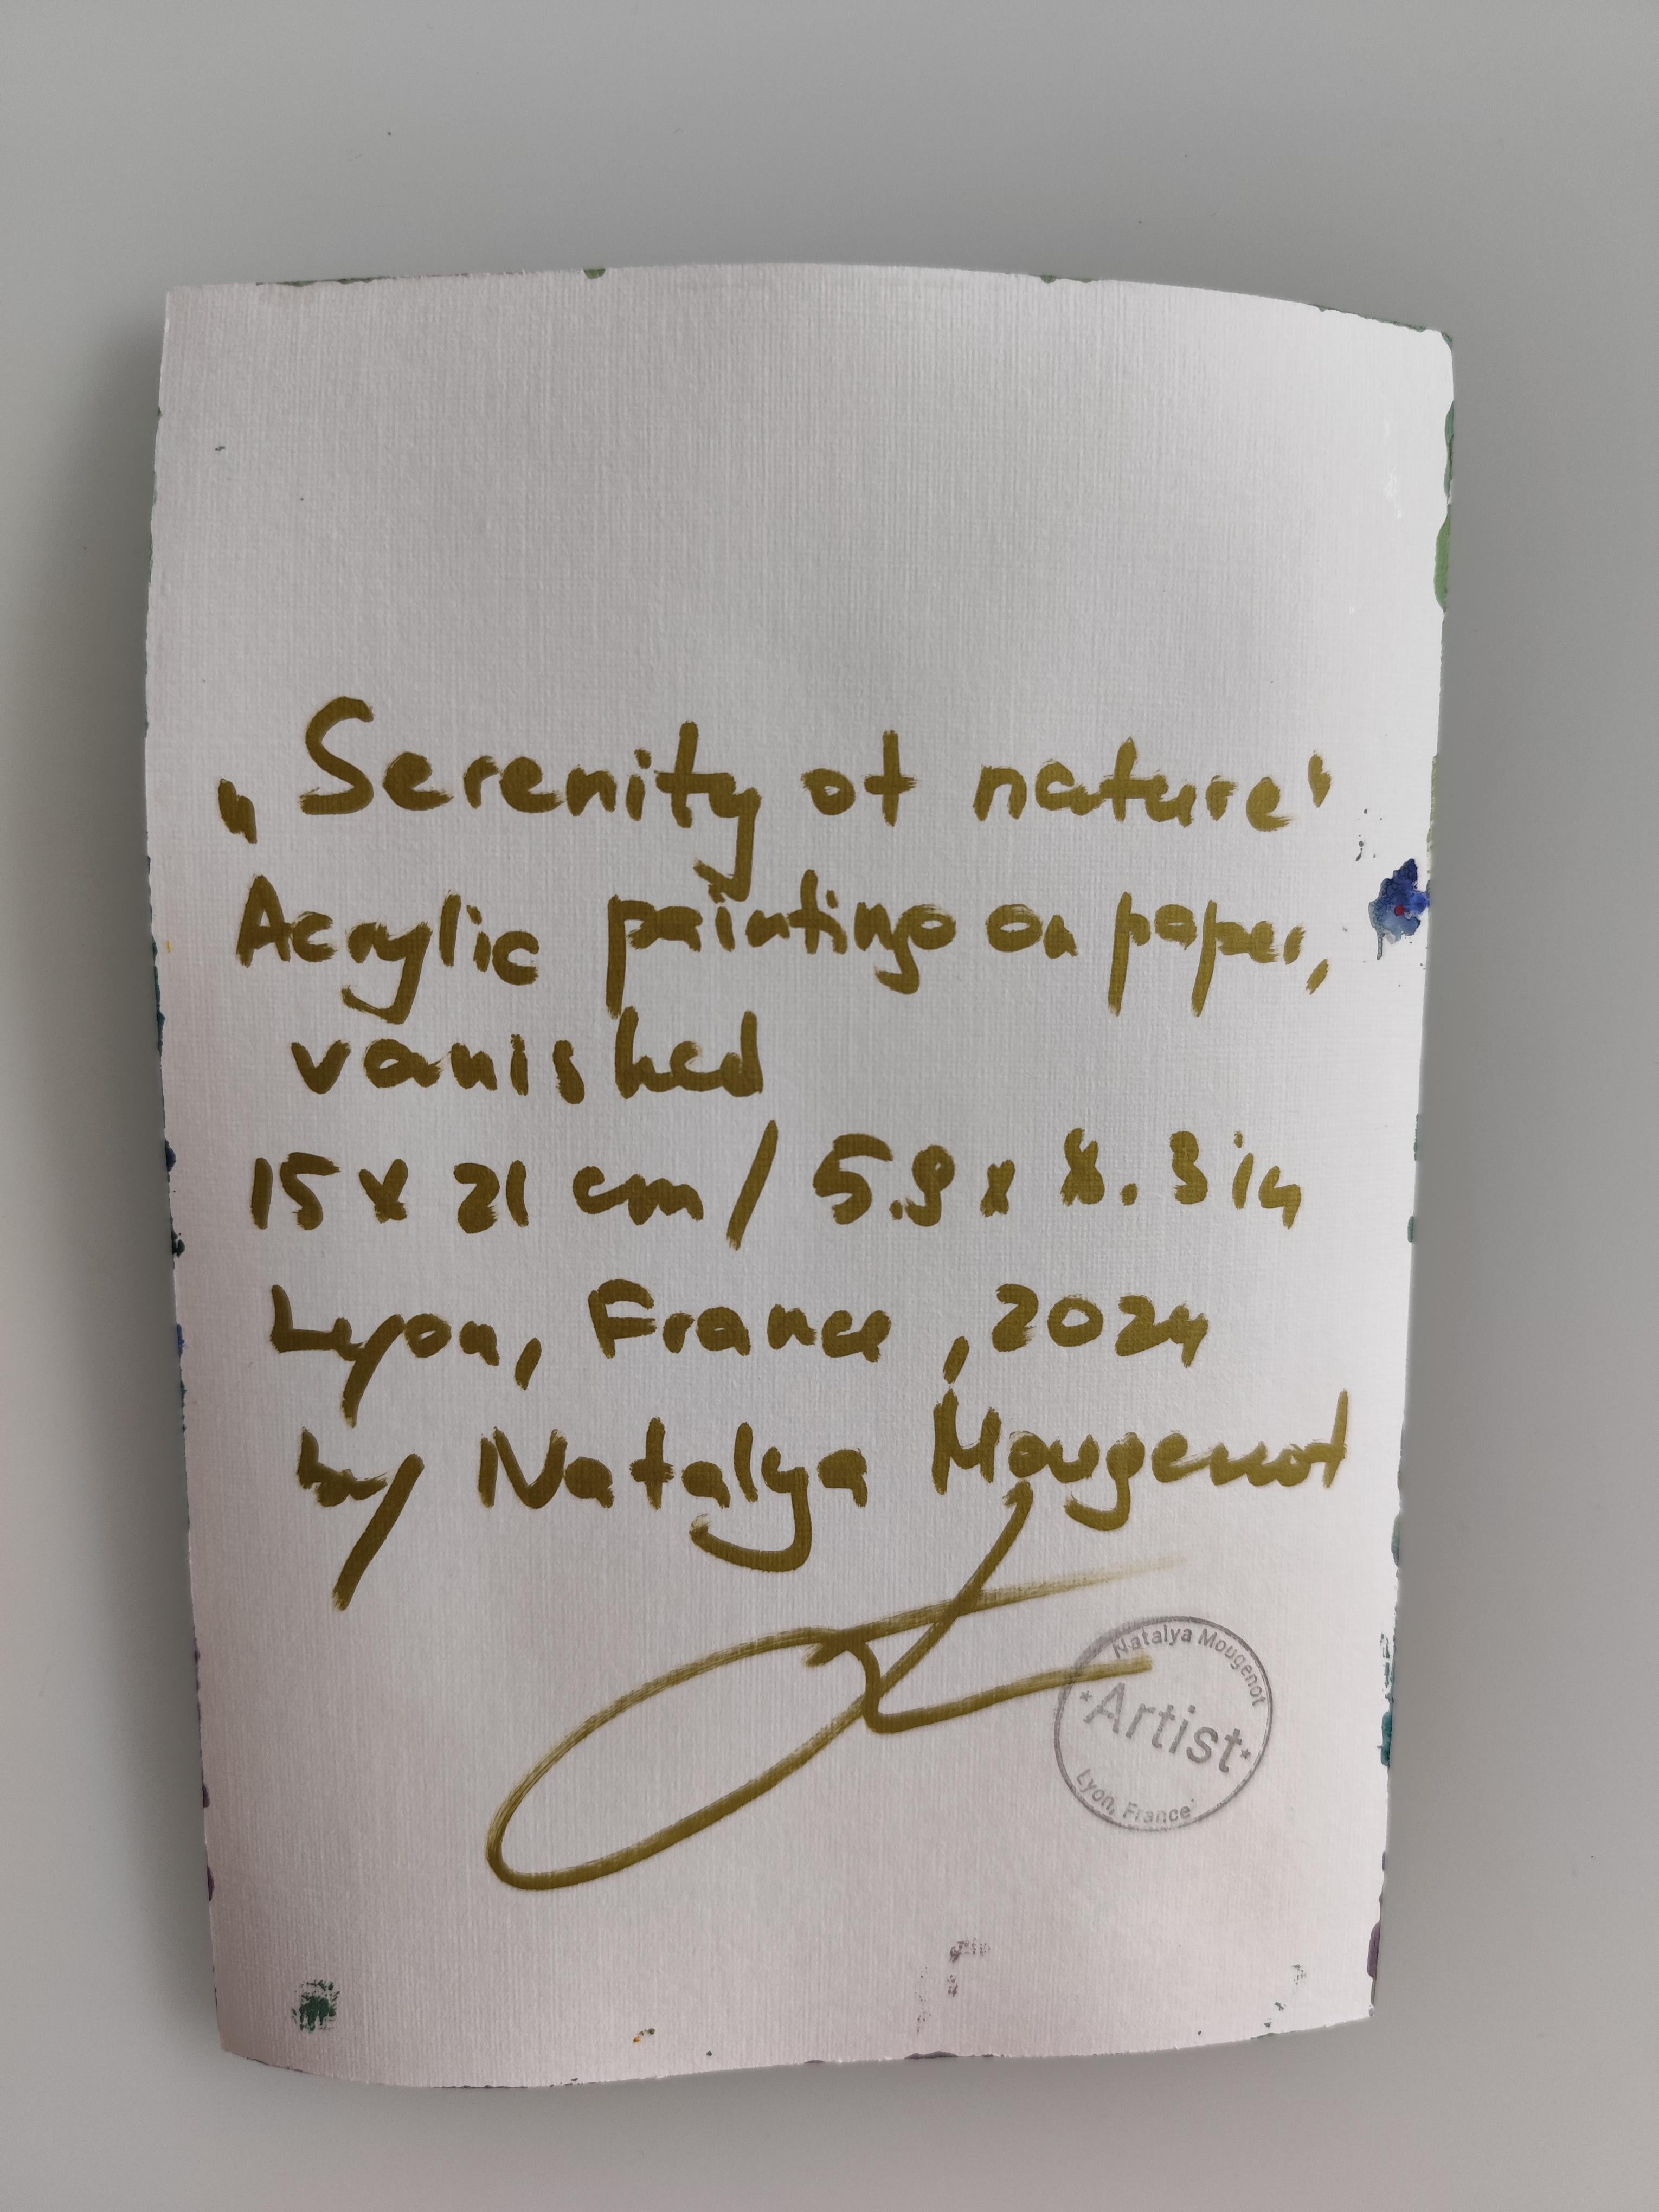 „Serenity of nature"
Acrylic painting on paper,
vanished
15 x 21 cm / 5.9 x 8.3 in
Lyon, France, 2024
by Natalya Mougenot
Natalya Mougenot
*Artist*
Lyon, France